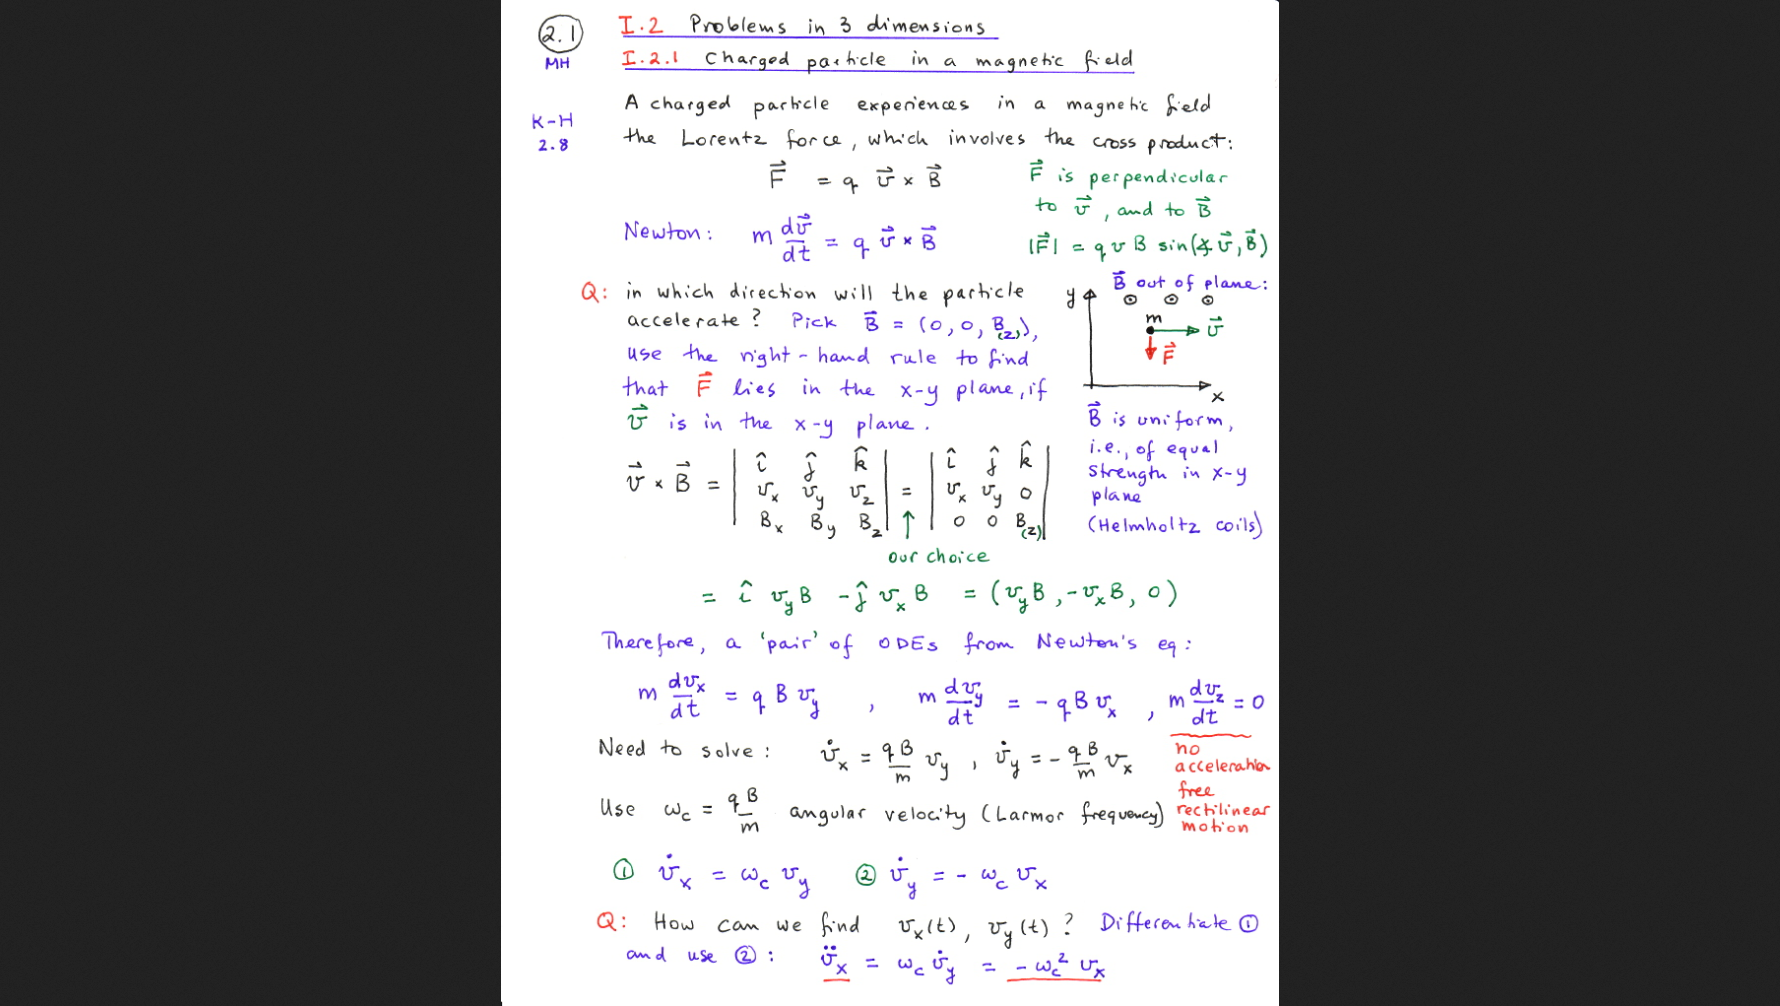 2.1 I.2 Problems in 3 dimensions
MH I.2.1 Charged particle in a magnetic field
A charged particle experiences in a magnetic field
K-H
2.8 the Lorentz force, which involves the cross product:
F⃗ = q v⃗ × B⃗
F⃗ is perpendicular
to v⃗, and to B⃗
Newton: m dv⃗/dt = q v⃗ × B⃗
|F⃗| = q v B sin(∡ v⃗, B⃗)
Q: in which direction will the particle
accelerate? Pick B⃗ = (0, 0, B(z)),
use the right-hand rule to find
that F⃗ lies in the x-y plane, if
v⃗ is in the x-y plane.
B⃗ out of plane:
y ⊙ ⊙ ⊙
m
v⃗
F⃗
x
B⃗ is uniform,
i.e., of equal
strength in x-y
plane
(Helmholtz coils)
v⃗ × B⃗ = | î ĵ k̂ | = | î ĵ k̂ |
| vx vy vz | | vx vy 0 |
| Bx By Bz | ↑ | 0 0 B(z) |
our choice
= î vy B - ĵ vx B = (vy B, -vx B, 0)
Therefore, a 'pair' of ODEs from Newton's eq:
m dvx/dt = q B vy , m dvy/dt = - q B vx , m dvz/dt = 0
no
acceleration
free
rectilinear
motion
Need to solve: v̇x = qB/m vy , v̇y = - qB/m vx
Use ωc = qB/m angular velocity (Larmor frequency)
① v̇x = ωc vy ② v̇y = - ωc vx
Q: How can we find vx(t), vy(t)? Differentiate ①
and use ②: v̈x = ωc v̇y = - ωc² vx